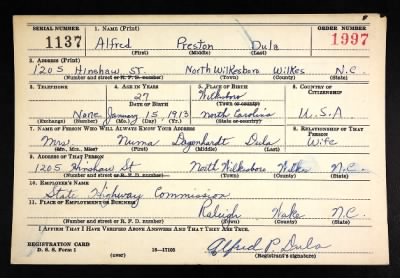 SERIAL NUMBER 1. NAME (Print) ORDER NUMBER
1137 Alfred Preston Dula 1997
(First) (Middle) (Last)
2. ADDRESS (Print)
1205 Hinshaw St. North Wilkesboro Wilkes N.C.
(Number and street or R. F. D. number) (Town) (County) (State)
3. TELEPHONE 4. AGE IN YEARS 5. PLACE OF BIRTH 6. COUNTRY OF CITIZENSHIP
27 Wilkesboro
DATE OF BIRTH (Town or county)
None January 15, 1913 North Carolina U.S.A
(Exchange) (Number) (Mo.) (Day) (Yr.) (State or country)
7. NAME OF PERSON WHO WILL ALWAYS KNOW YOUR ADDRESS 8. RELATIONSHIP OF THAT PERSON
Mrs Numa Dagenhardt Dula Wife
(Mr., Mrs., Miss) (First) (Middle) (Last)
9. ADDRESS OF THAT PERSON
1205 Hinshaw St North Wilkesboro Wilkes N.C.
(Number and street or R. F. D. number) (Town) (County) (State)
10. EMPLOYER'S NAME
State Highway Commission
11. PLACE OF EMPLOYMENT OR BUSINESS
Raleigh Wake N.C.
(Number and street or R. F. D. number) (Town) (County) (State)
I AFFIRM THAT I HAVE VERIFIED ABOVE ANSWERS AND THAT THEY ARE TRUE.
REGISTRATION CARD
D. S. S. Form 1 (over) 16—17105 Alfred P. Dula
(Registrant's signature)